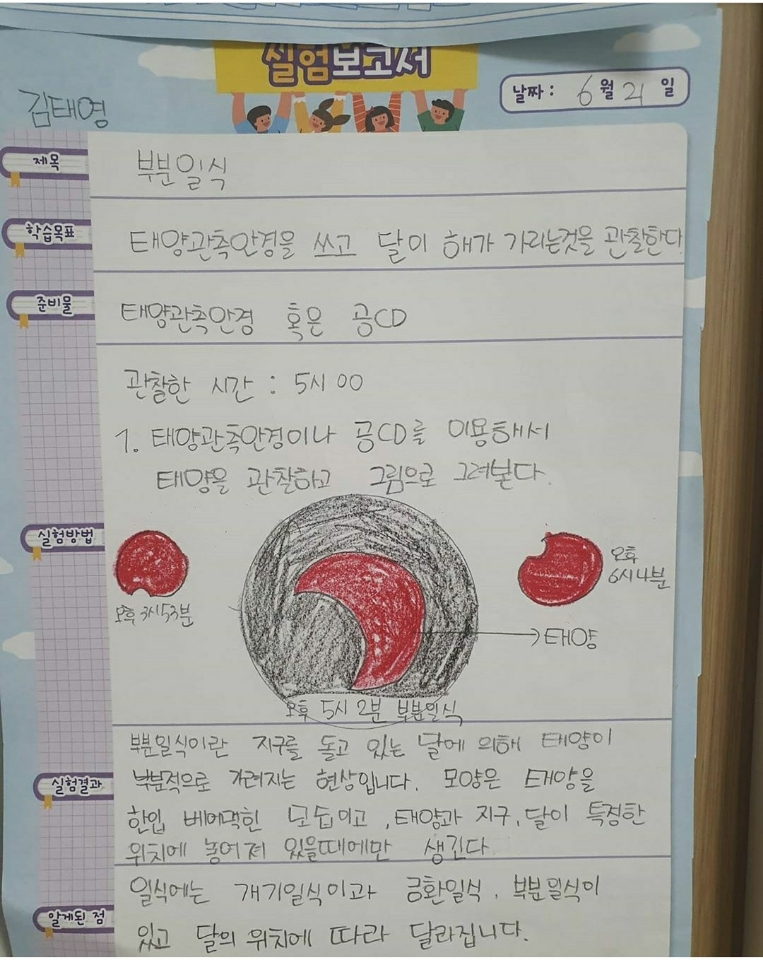 실험보고서
김태영
날짜: 6월 21일
제목
부분일식
학습목표
태양관측안경을 쓰고 달이 해가 가리는것을 관찰한다
준비물
태양관측안경 혹은 공CD
관찰한 시간 : 5시 00
1. 태양관측안경이나 공CD를 이용해서
태양을 관찰하고 그림으로 그려본다.
실험방법
오후 3시53분
오후
6시4분
태양
오후 5시 2분 부분일식
부분일식이란 지구를 돌고 있는 달에 의해 태양이
실험결과
부분적으로 가려지는 현상입니다. 모양은 태양을
한입 베어먹힌 모습이고, 태양과 지구, 달이 특정한
위치에 놓어져 있을때에만 생긴다
알게된 점
일식에는 개기일식이과 금환일식, 부분일식이
있고 달의 위치에 따라 달라집니다.